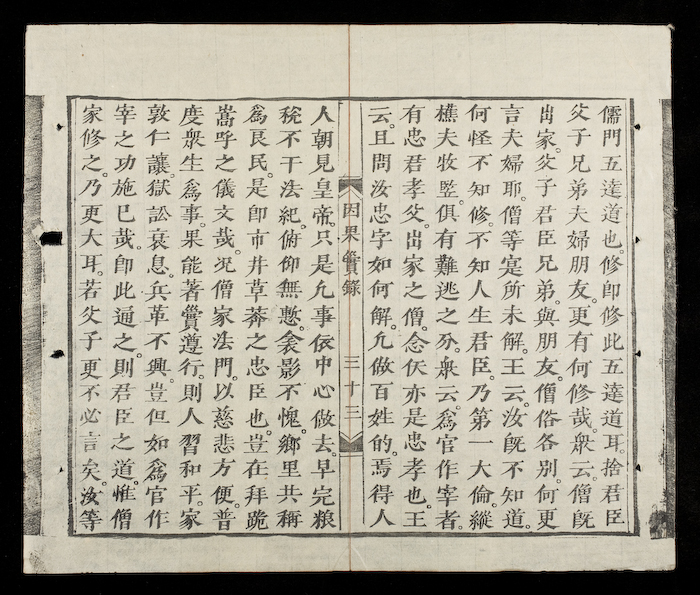 儒門五達道也。修即修此五達道耳。捨君臣
父子兄弟夫婦朋友。更有何修哉。衆云。僧既
出家。父子君臣兄弟。與朋友。僧俗各別。何更
言夫婦耶。僧等寔所未解。王云。汝既不知道。
何怪不知修。不知人生君臣。乃第一大倫。縱
樵夫牧豎。俱有難逃之分。衆云。爲官作宰者。
有忠君孝父。出家之僧。念仸亦是忠孝也。王
云。且問汝忠字如何解。凡做百姓的。焉得人
因果實錄 三十三
人朝見皇帝。只是凡事依中心做去。早完粮
稅。不干法紀。俯仰無愆。衾影不愧。鄉里共稱
爲良民。是即市井草莽之忠臣也。豈在拜跪
嵩呼之儀文哉。况僧家法門。以慈悲方便。普
度衆生爲事。果能著實遵行。則人習和平。家
敦仁讓。獄訟衰息。兵革不興。豈但如爲官作
宰之功施巳哉。即此通之。則君臣之道。惟僧
家修之。乃更大耳。若父子更不必言矣。汝等